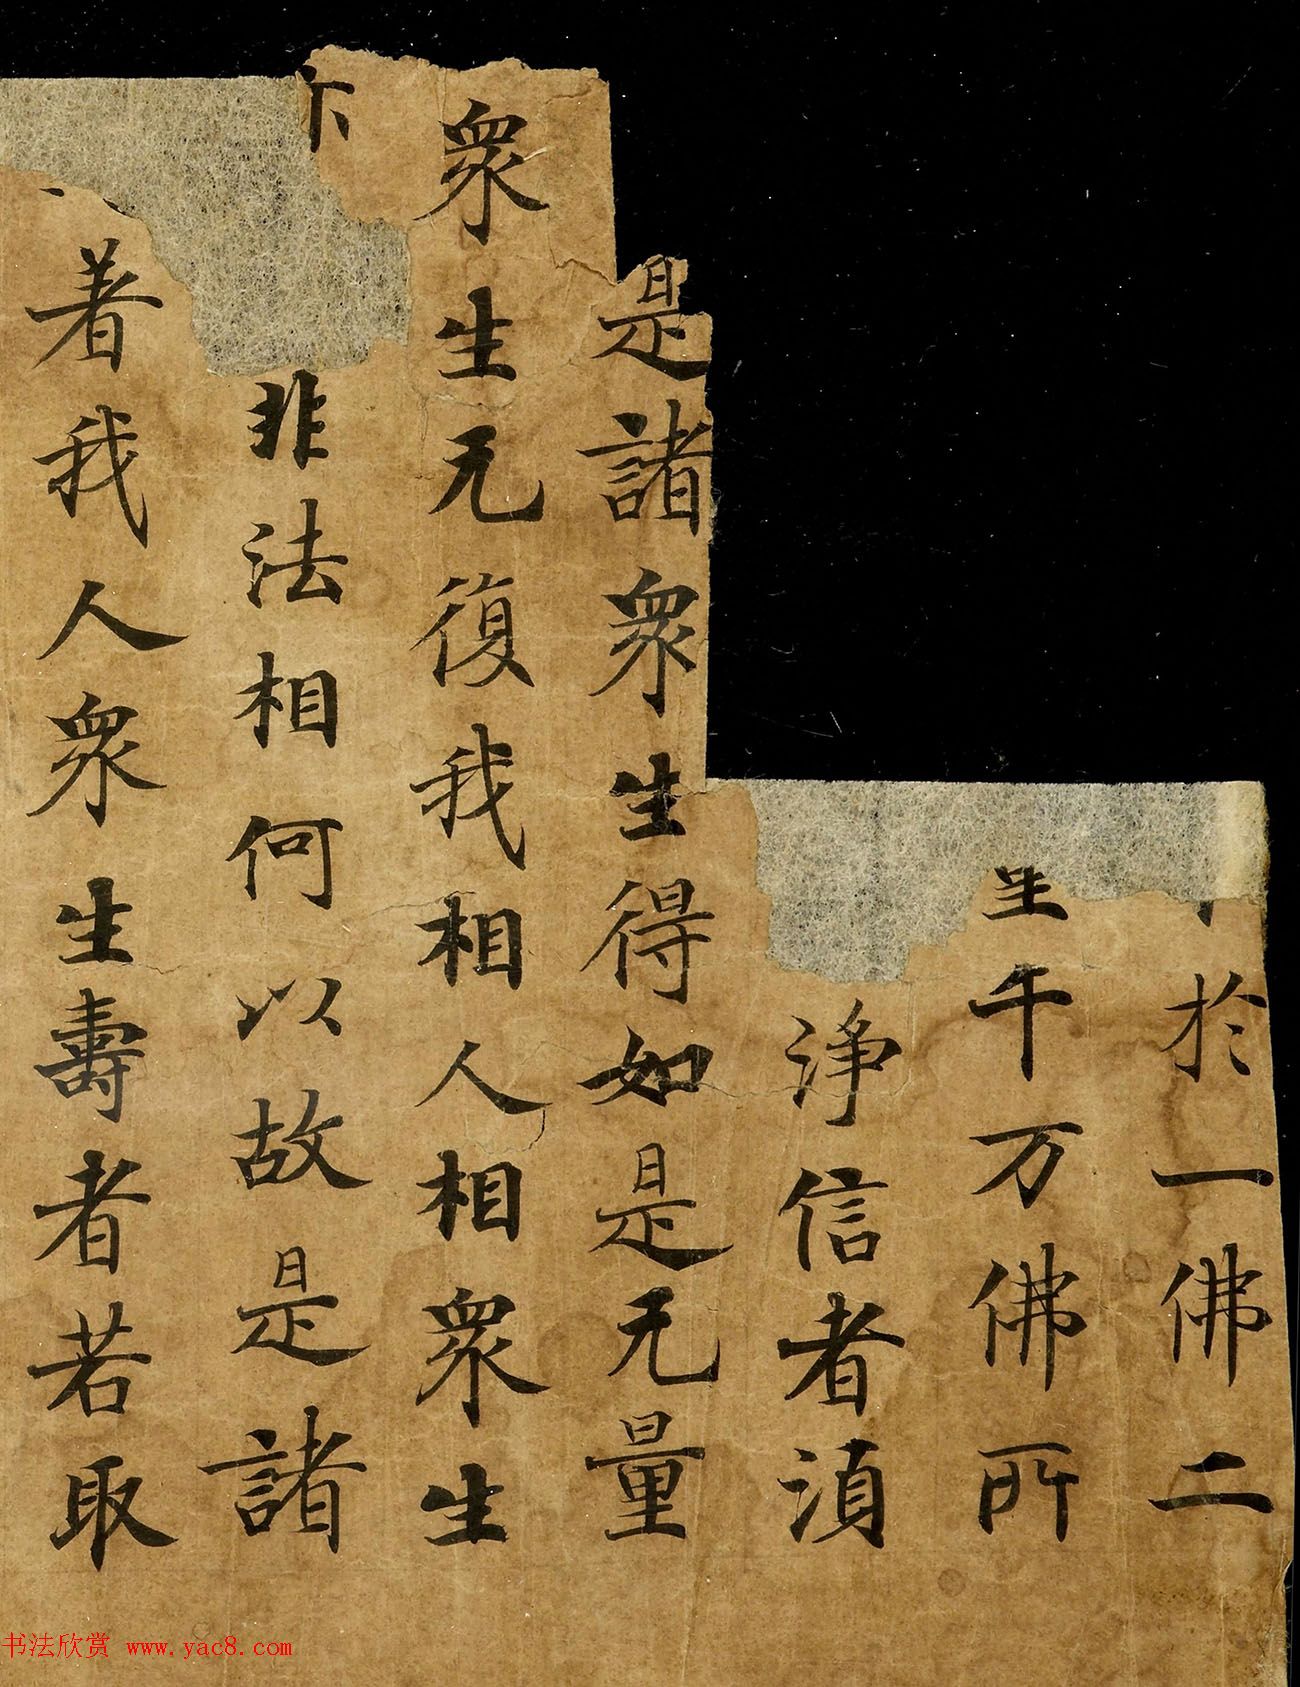 於一佛二
量千万佛所
淨信者湏
是諸眾生得如是无量
眾生无復我相人相眾生
非法相何以故是諸
著我人眾生壽者若取
书法欣赏 www.yac8.com